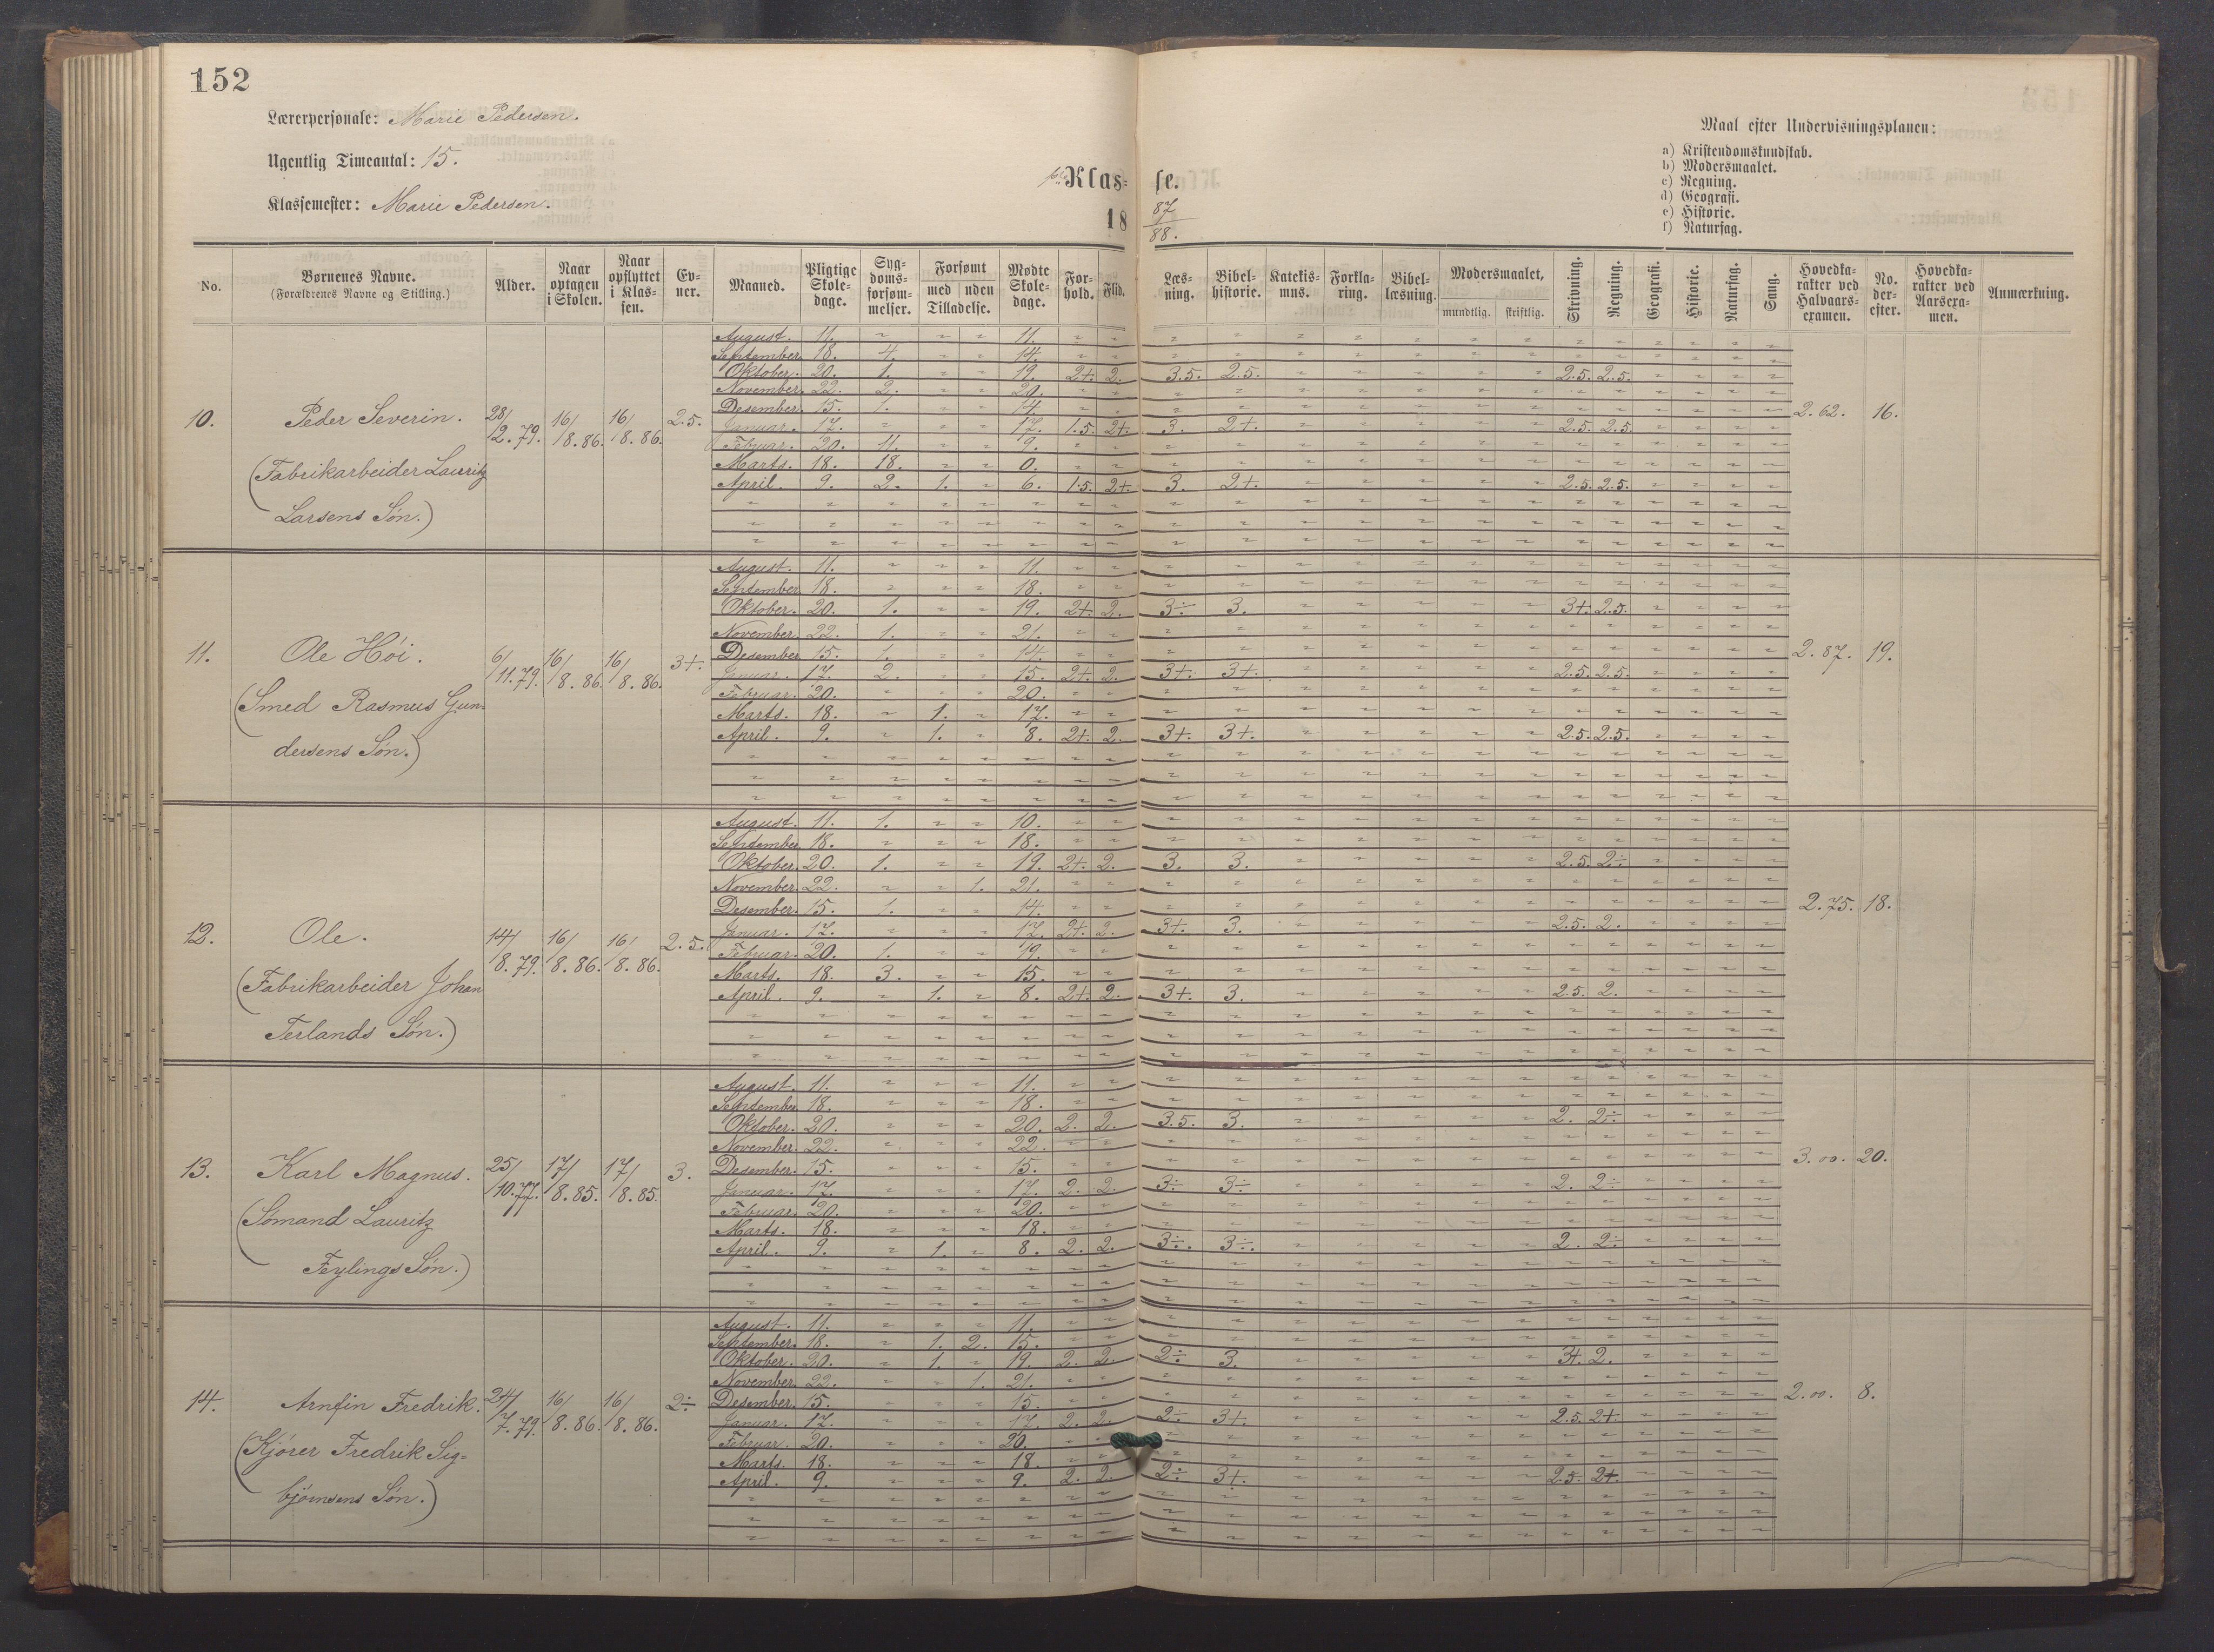 152
Lærerpersonale: Marie Pedersen.
Ugentlig Timeantal: 15.
Klassemester: Marie Pedersen.
Klasse.
18 87/88.
Maal efter Undervisningsplanen:
a) Kristendomskundskab.
b) Modersmaalet.
c) Regning.
d) Geografi.
e) Historie.
f) Naturfag.
No. | Børnenes Navne. (Forældrenes Navne og Stilling.) | Alder. | Naar optagen i Skolen. | Naar opflyttet i Klassen. | Evner. | Maaned. | Pligtige Skoledage. | Sygdomsforsømmelser. | Forsømt med uden Tilladelse. | Mødte Skoledage. | Forhold. | Flid. | Læsning. | Bibelhistorie. | Katekismus. | Forklaring. | Bibellæsning. | Modersmaalet, mundtlig. skriftlig. | Skrivning. | Regning. | Geografi. | Historie. | Naturfag. | Sang. | Hovedkarakter ved Halvaarsexamen. | No. derefter. | Hovedkarakter ved Aarsexamen. | Anmærkning.
10. Peder Severin. 28/12.79. 16/8.86. 16/8.86. 2.5. 2.62. 16.
(Fabrikarbeider Lauritz
Larsens Søn.)
August. 11. " " " 11. " "
September. 18. 4. " " 14. " "
Oktober. 20. 1. " " 19. 2+. 2. 3.5. 2.5. 2.5. 2.5.
November. 22. 2. " " 20. " "
Desember. 15. 1. " " 14. " "
Januar. 17. " " " 17. 1.5. 2+. 3. 2+. 2.5. 2.5.
Februar. 20. 11. " " 9. " "
Marts. 18. 18. " " 0. " "
April. 9. 2. 1. " 6. 1.5. 2+. 3. 2+. 2.5. 2.5.
11. Ole Høi. 6/11.79. 16/8.86. 16/8.86. 3+. 2.87. 19.
(Smed Rasmus Gun-
dersens Søn.)
August. 11. " " " 11. " "
September. 18. " " " 18. " "
Oktober. 20. 1. " " 19. 2+. 2. 3÷ 3. 3+. 2.5.
November. 22. 1. " " 21. " "
Desember. 15. 1. " " 14. " "
Januar. 17. 2. " " 15. 2+. 2. 3+. 3+. 2.5. 2.5.
Februar. 20. " " " 20. " "
Marts. 18. " 1. " 17. " "
April. 9. " 1. " 8. 2+. 2. 3+. 3+. 2.5. 2.5.
12. Ole. 14/8.79. 16/8.86. 16/8.86. 2.5. 2.75. 18.
(Fabrikarbeider Johan
Terlands Søn.)
August. 11. 1. " " 10. " "
September. 18. " " " 18. " "
Oktober. 20. 1. " " 19. 2+. 2. 3. 3. 2.5. 2÷
November. 22. " " 1. 21. " "
Desember. 15. 1. " " 14. " "
Januar. 17. " " " 17. 2+. 2. 3+. 3. 2.5. 2.
Februar. 20. 1. " " 19. " "
Marts. 18. 3. " " 15. " "
April. 9. " 1. " 8. 2+. 2. 3+. 3. 2.5. 2.
13. Karl Magnus. 25/10.77. 17/8.85. 17/8.85. 3. 3.00. 20.
(Sømand Lauritz
Feylings Søn.)
August. 11. " " " 11. " "
September. 18. " " " 18. " "
Oktober. 20. " " " 20. 2. 2. 3.5. 3. 2. 2÷
November. 22. " " " 22. " "
Desember. 15. " " " 15. " "
Januar. 17. " " " 17. 2. 2. 3÷ 3÷ 2. 2÷
Februar. 20. " " " 20. " "
Marts. 18. " " " 18. " "
April. 9. " 1. " 8. 2. 2. 3÷. 3÷. 2. 2÷
14. Arnfin Fredrik. 24/7.79. 16/8.86. 16/8.86. 2÷ 2.00. 8.
(Kjører Fredrik Sig-
bjørnsens Søn.)
August. 11. " " " 11. " "
September. 18. " 1. 2. 15. " "
Oktober. 20. " 1. " 19. 2. 2. 2÷ 3. 3+. 2.
November. 22. " " 1. 21. " "
Desember. 15. " " " 15. " "
Januar. 17. " " " 17. 2. 2. 2÷ 3+. 2.5. 2+.
Februar. 20. " " " 20. " "
Marts. 18. " " " 18. " "
April. 9. " " " 9. 2. 2. 2÷ 3+. 2.5. 2+.